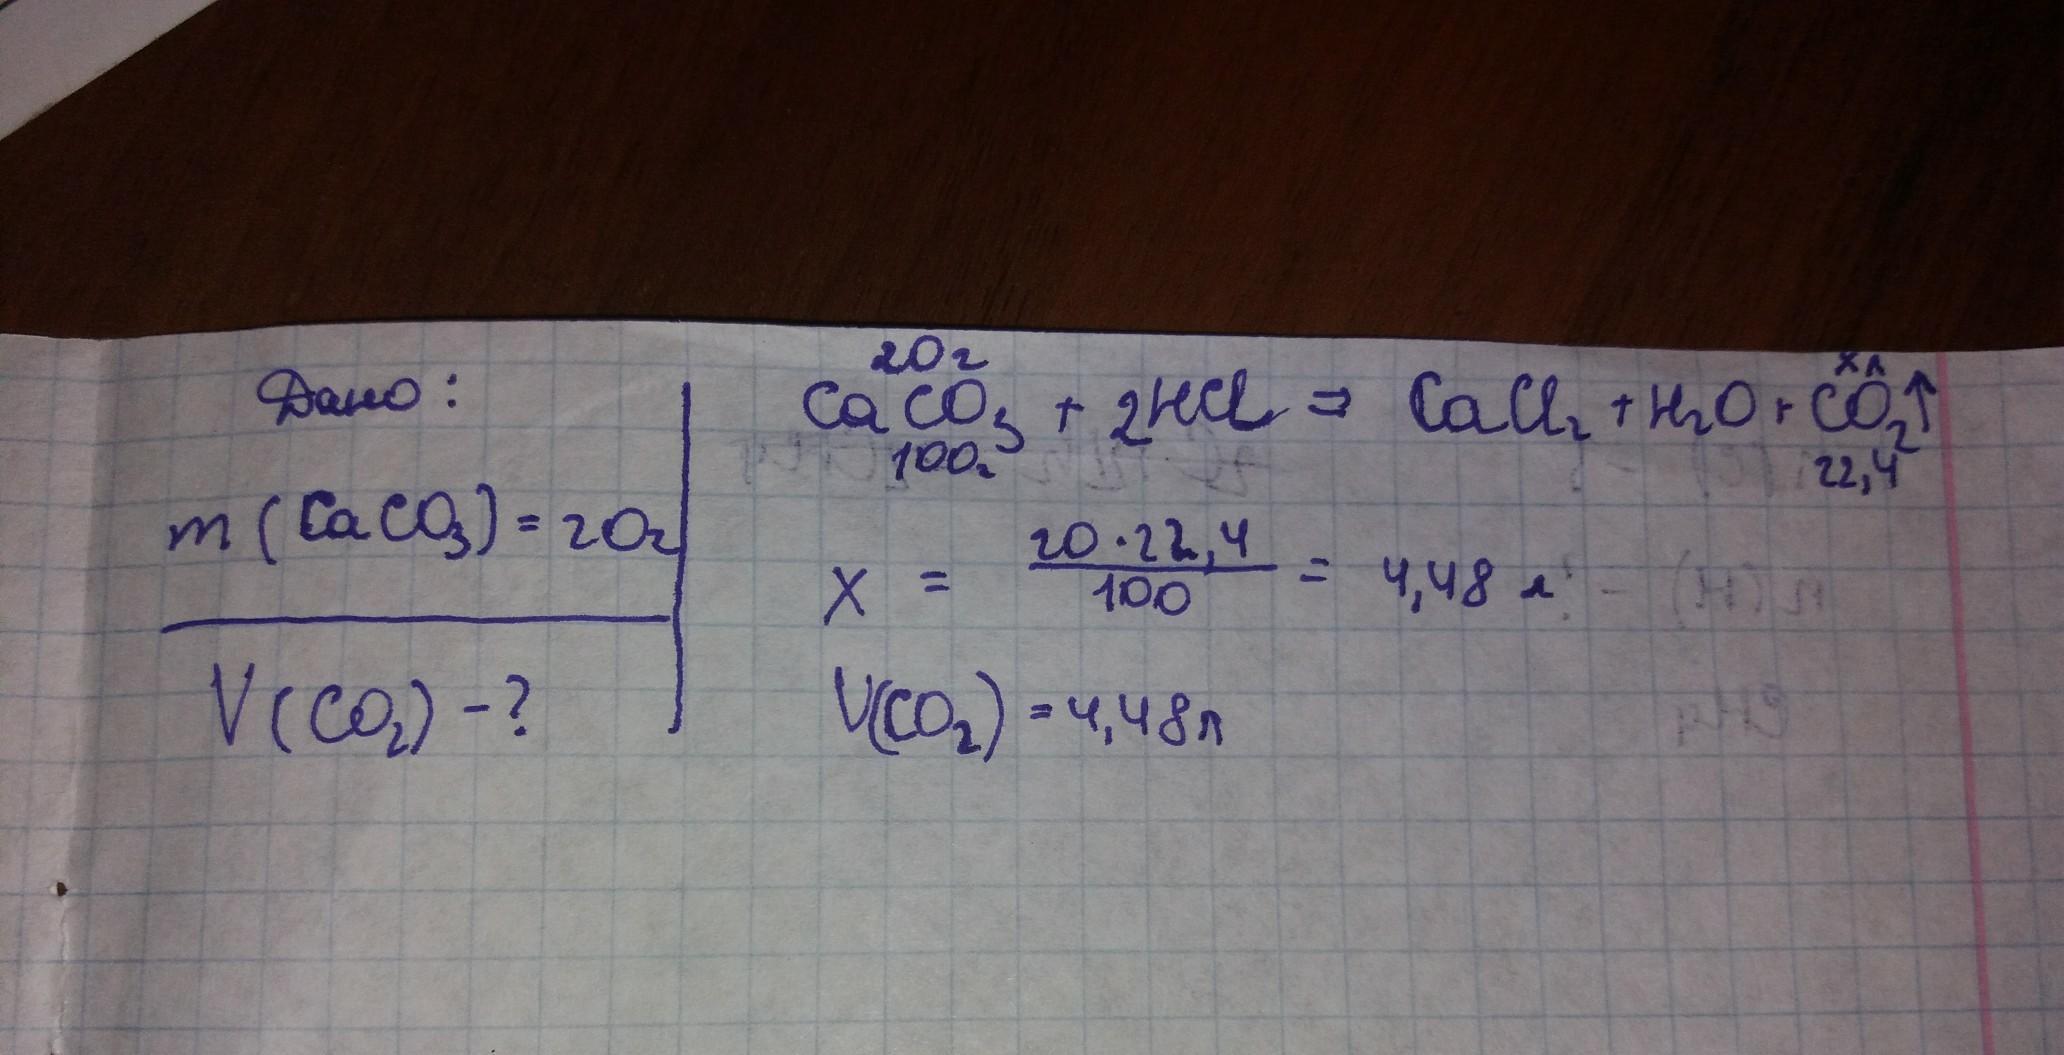 Дано:
m(CaCO₃) = 20г
V(CO₂) - ?
20г xл
CaCO₃ + 2HCl = CaCl₂ + H₂O + CO₂↑
100г 22,4
x = 20·22,4 / 100 = 4,48 л
V(CO₂) = 4,48л